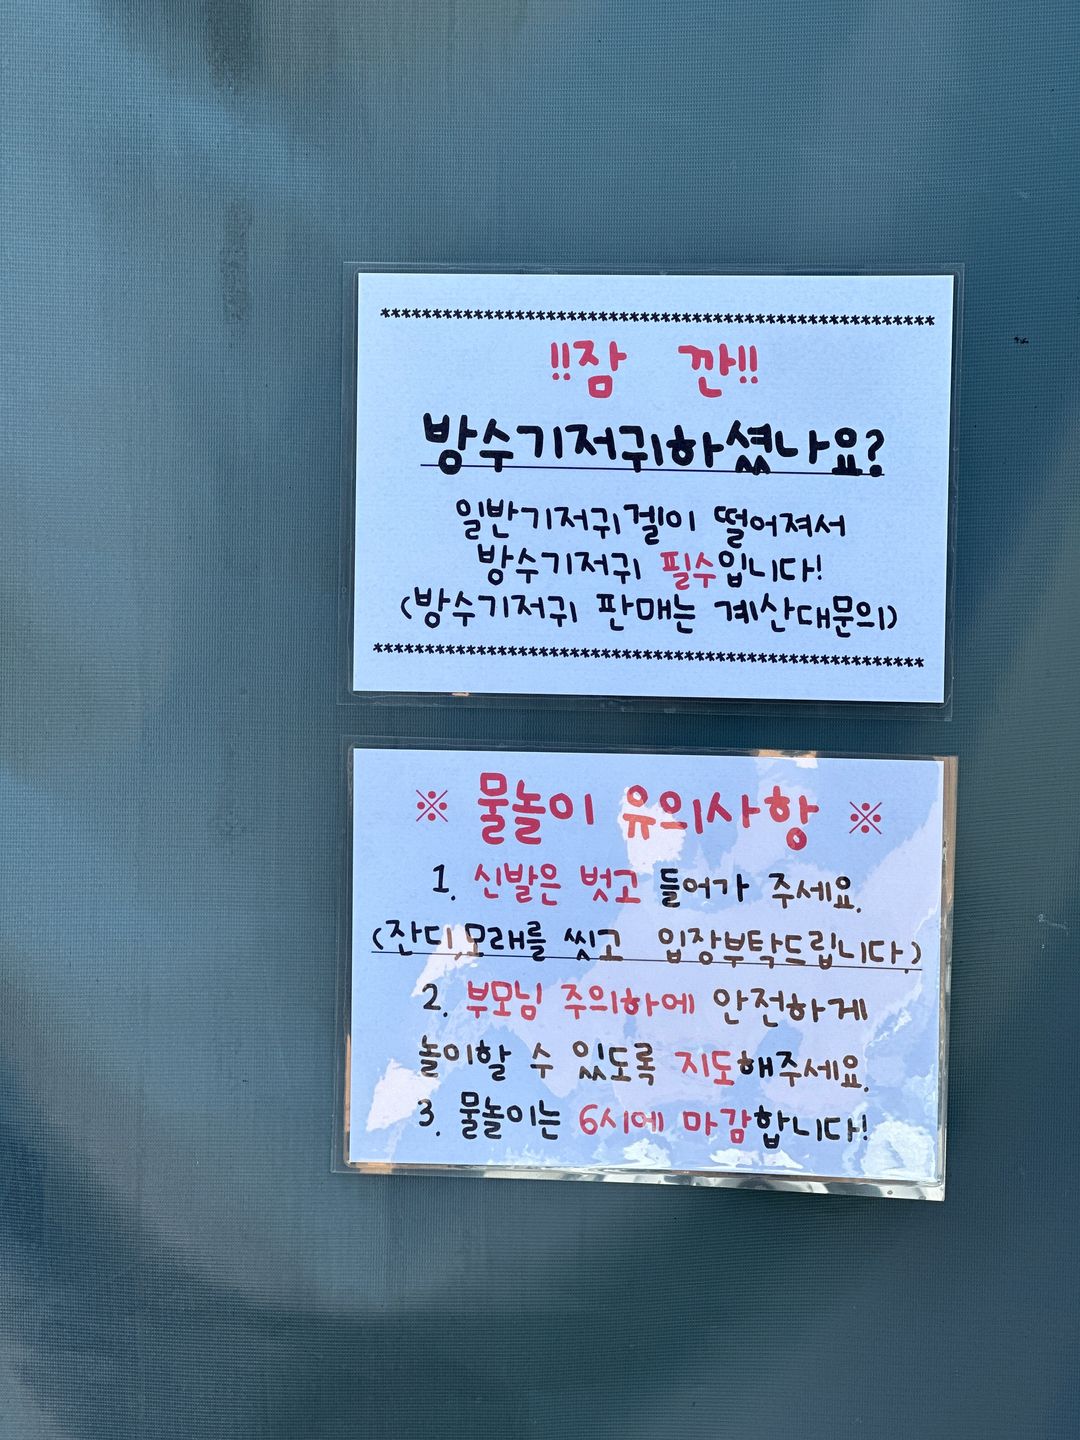 *****************************************************
!!잠 깐!!
방수기저귀하셨나요?
일반기저귀겔이 떨어져서
방수기저귀 필수입니다!
(방수기저귀 판매는 계산대문의)
*****************************************************
※ 물놀이 유의사항 ※
1. 신발은 벗고 들어가 주세요.
(잔디,모래를 씻고 입장부탁드립니다.)
2. 부모님 주의하에 안전하게
놀이할 수 있도록 지도해주세요.
3. 물놀이는 6시에 마감합니다!